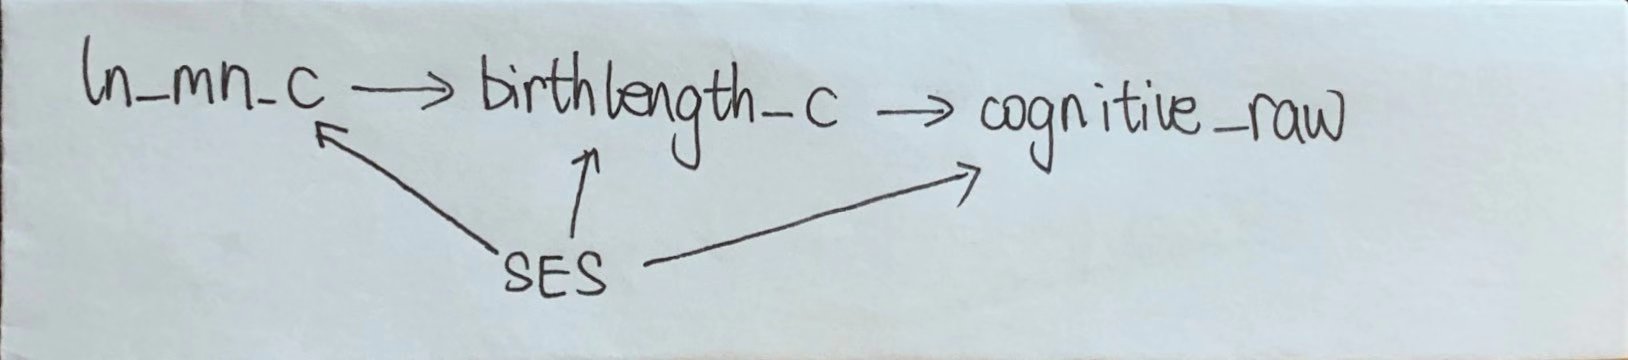 ln_mn_c → birthlength_c → cognitive_raw
SES